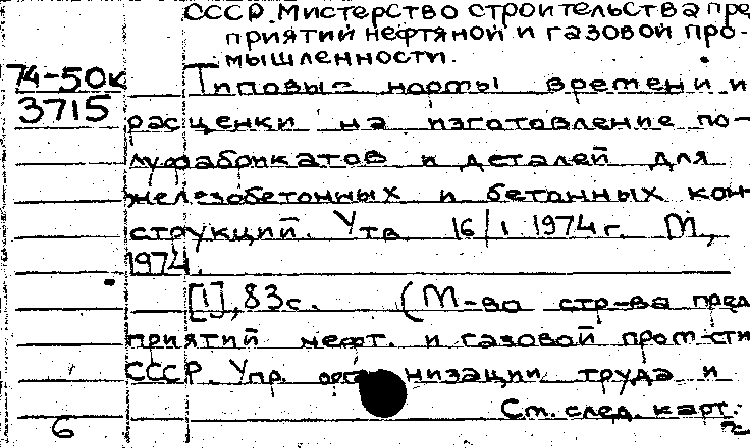 СССР. Мистерство строительства пре
приятий нефтяной и газовой про-
мышленности.
74-50к
3715
Типовые нормы времени и
расценки на изготовление по-
луфабрикатов и деталей для
железобетонных и бетонных кон
струкций. Утв. 16/I 1974г. М.,
1974.
[1], 83с. (М-во стр-ва пред
приятий нефт. и газовой пром-сти
СССР. Упр. организации труда и
См. след. карт.
6